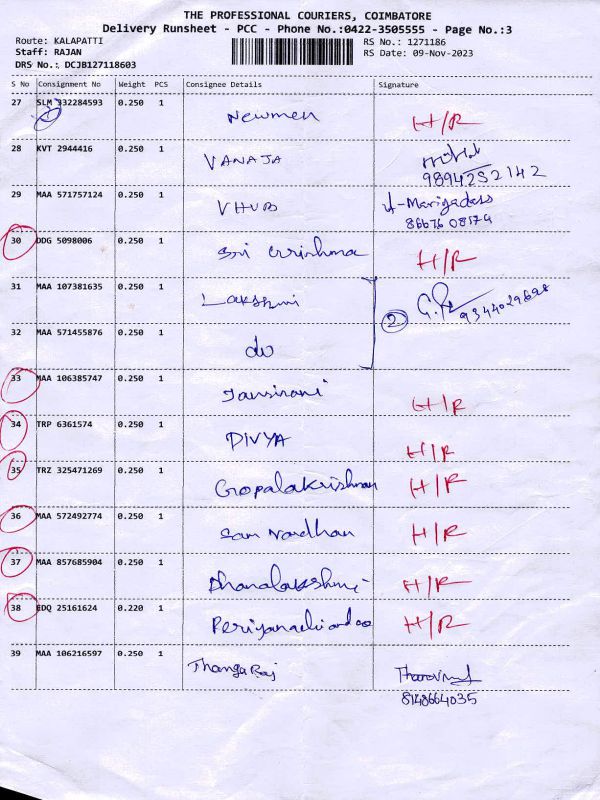 THE PROFESSIONAL COURIERS, COIMBATORE
Delivery Runsheet - PCC - Phone No.:0422-3505555 - Page No.:3
Route: KALAPATTI
RS No.: 1271186
Staff: RAJAN
RS Date: 09-Nov-2023
DRS No.: DCJB127118603
S No Consignment No Weight PCS Consignee Details Signature
27 SLM 332284593 0.250 1 Newmen H/R
28 KVT 2944416 0.250 1 VANAJA
9894252142
29 MAA 571757124 0.250 1 VHUB
86676 08579
30 DDG 5098006 0.250 1 Sri H/R
31 MAA 107381635 0.250 1 Lakshmi
2 9344029698
32 MAA 571455876 0.250 1 do
33 MAA 106385747 0.250 1 Jansirani H/R
34 TRP 6361574 0.250 1 DIVYA H/R
35 TRZ 325471269 0.250 1 Gopalakrishnan H/R
36 MAA 572492774 0.250 1 Sam H/R
37 MAA 857685904 0.250 1 Dhanalakshmi H/R
38 EDQ 25161624 0.220 1 H/R
39 MAA 106216597 0.250 1 ThangaRaj
8148664035